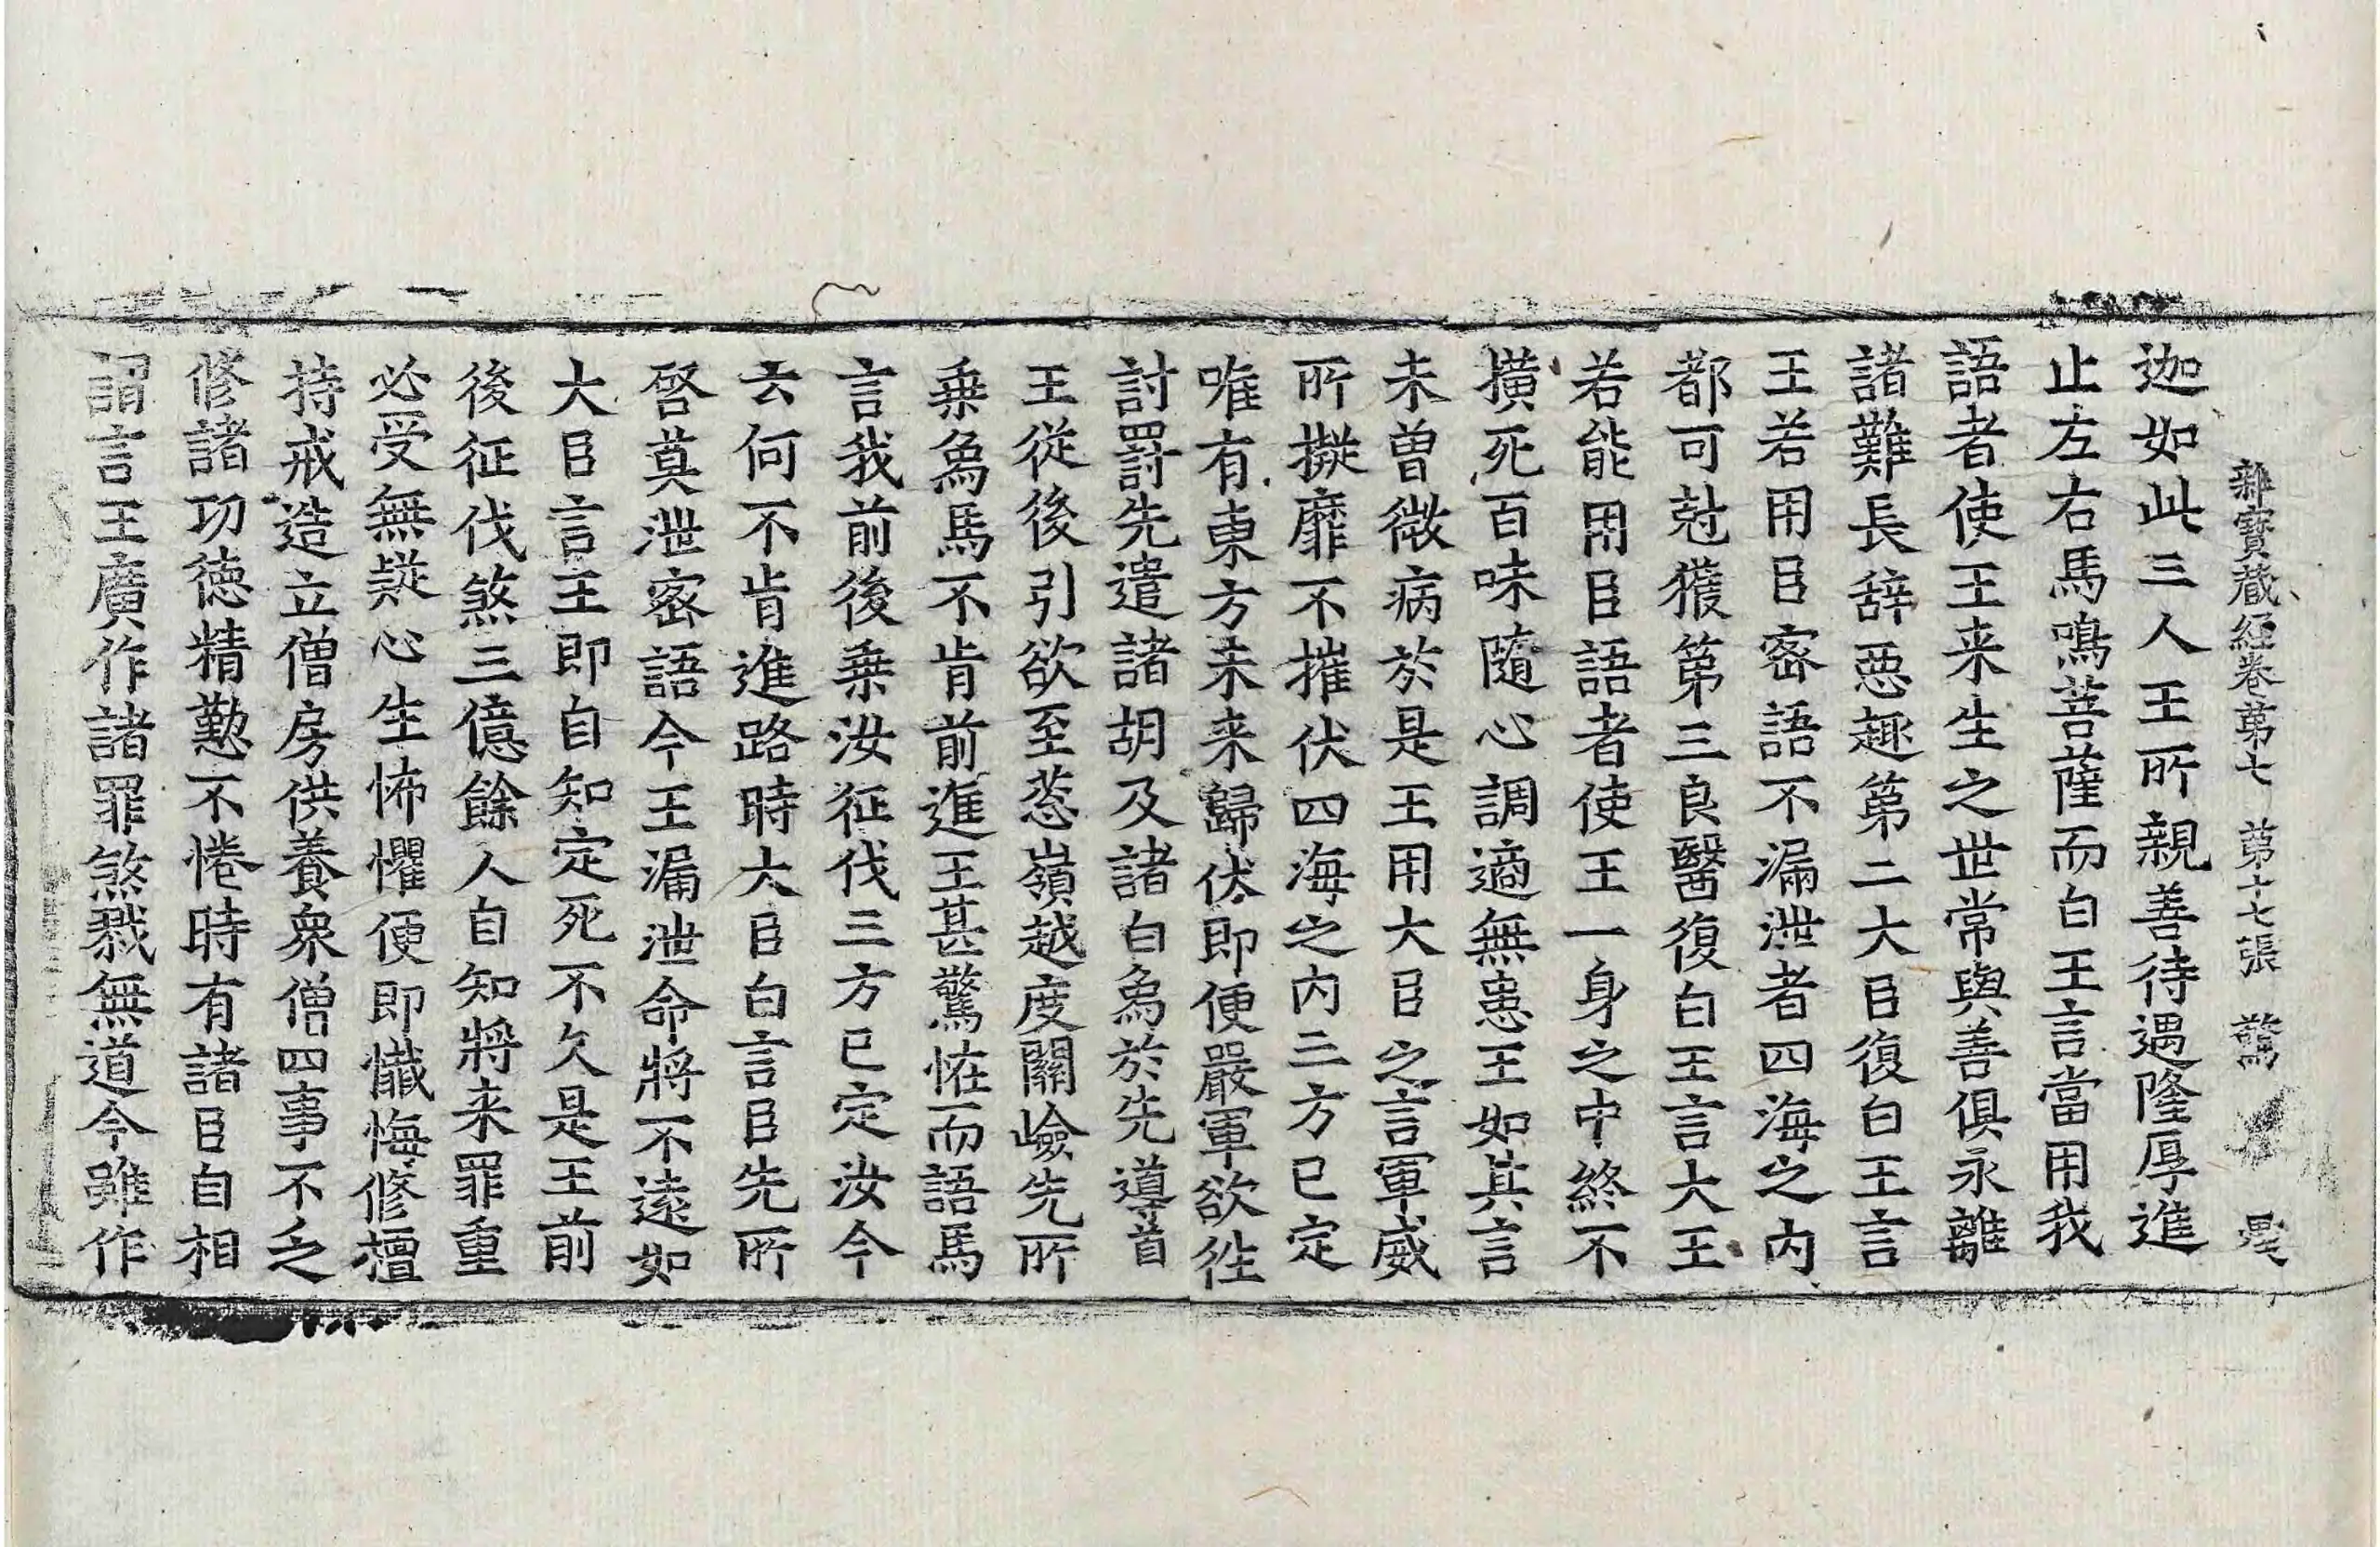 雜寶蔵経卷第七 第十七張 驚
迦如此三人王所親善待遇隆厚進
止左右馬鳴菩薩而白王言當用我
語者使王来生之世常與善俱永離
諸難長辞惡趣第二大臣復白王言
王若用臣密語不漏泄者四海之內
都可尅獲第三良醫復白王言大王
若能用臣語者使王一身之中終不
撗死百味隨心調適無患王如其言
未曽微病於是王用大臣之言軍威
所擬靡不摧伏四海之內三方已定
唯有東方未来歸伏即便嚴軍欲往
討罸先遣諸胡及諸白象於先導首
王從後引欲至葱嶺越度關嶮先所
乗象馬不肯前進王甚驚恠而語馬
言我前後乗汝征伐三方已定汝今
云何不肯進路時大臣白言臣先所
啓莫泄密語今王漏泄命將不遠如
大臣言王即自知定死不久是王前
後征伐煞三億餘人自知將来罪重
必受無疑心生怖懼便即懺悔修檀
持戒造立僧房供養衆僧四事不乏
修諸功德精懃不惓時有諸臣自相
謂言王廣作諸罪煞戮無道今雖作